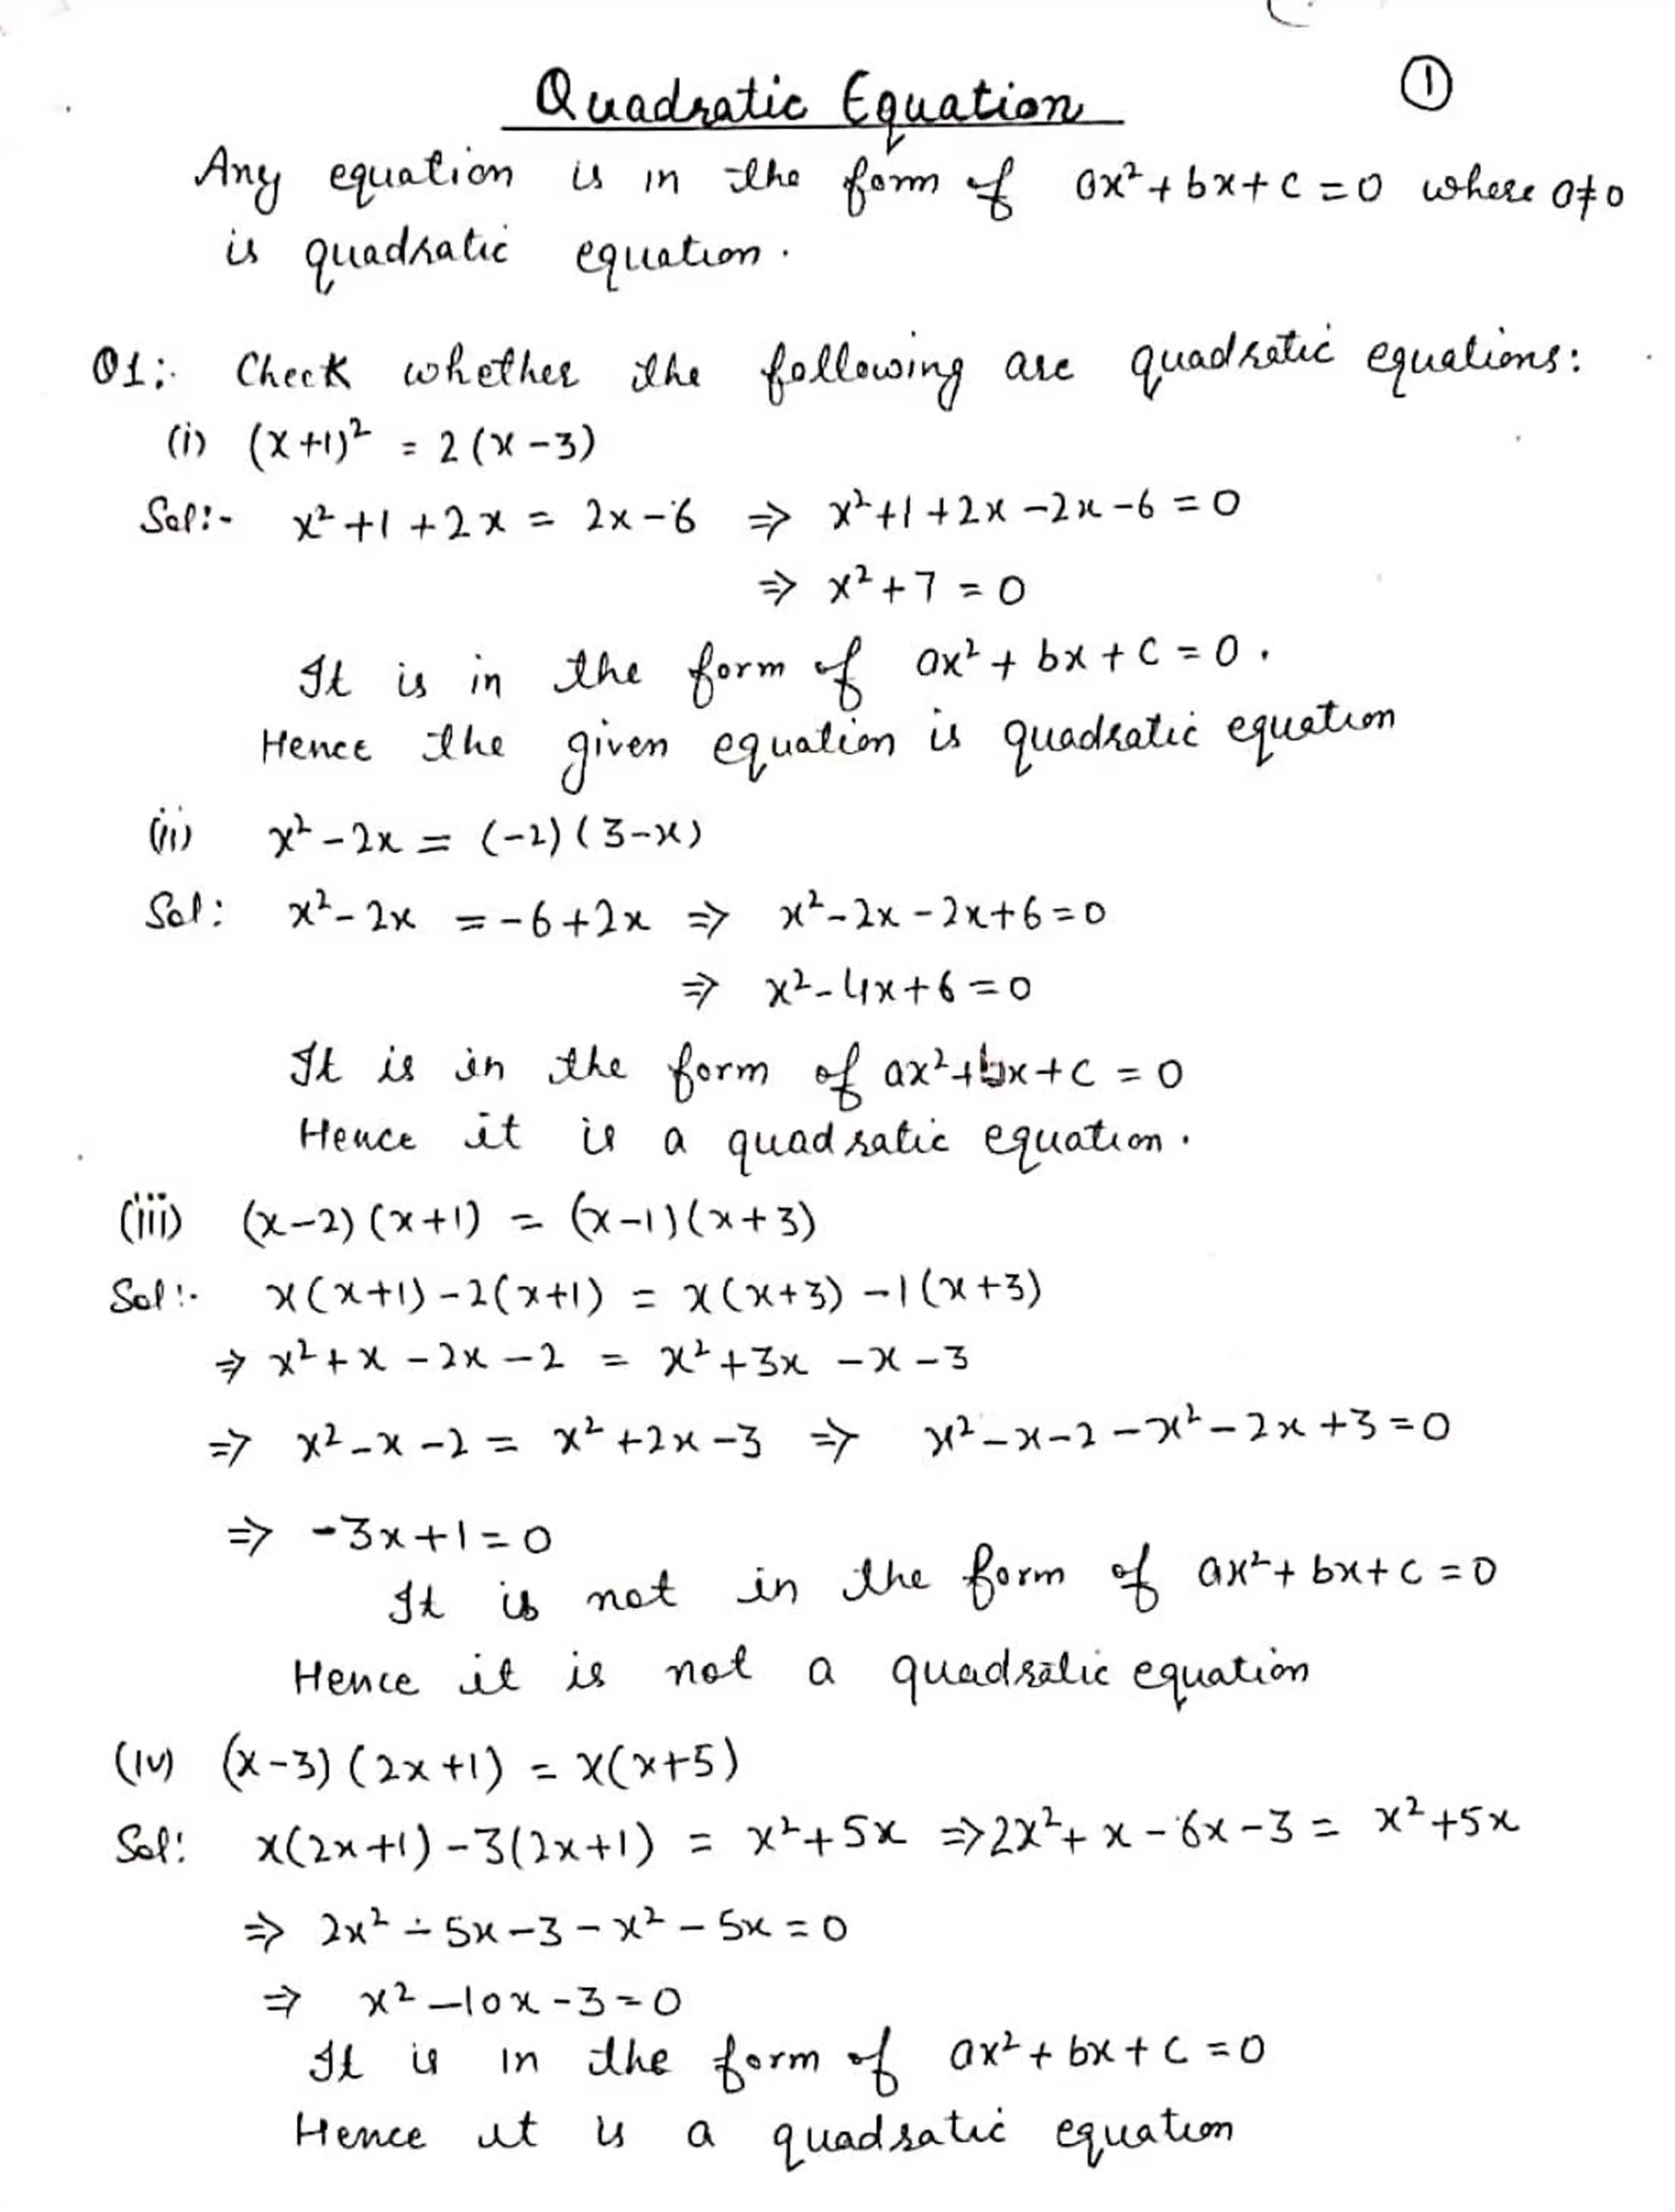 Quadratic Equation ①
Any equation is in the form of ax² + bx + c = 0 where a ≠ 0
is quadratic equation.
Q1:. Check whether the following are quadratic equations:
(i) (x+1)² = 2(x-3)
Sol:- x² + 1 + 2x = 2x - 6 ⇒ x² + 1 + 2x - 2x - 6 = 0
⇒ x² + 7 = 0
It is in the form of ax² + bx + c = 0.
Hence the given equation is quadratic equation
(ii) x² - 2x = (-2)(3-x)
Sol: x² - 2x = -6 + 2x ⇒ x² - 2x - 2x + 6 = 0
⇒ x² - 4x + 6 = 0
It is in the form of ax² + bx + c = 0
Hence it is a quadratic equation.
(iii) (x-2)(x+1) = (x-1)(x+3)
Sol:. x(x+1) - 2(x+1) = x(x+3) - 1(x+3)
⇒ x² + x - 2x - 2 = x² + 3x - x - 3
⇒ x² - x - 2 = x² + 2x - 3 ⇒ x² - x - 2 - x² - 2x + 3 = 0
⇒ -3x + 1 = 0
It is not in the form of ax² + bx + c = 0
Hence it is not a quadratic equation
(iv) (x-3)(2x+1) = x(x+5)
Sol: x(2x+1) - 3(2x+1) = x² + 5x ⇒ 2x² + x - 6x - 3 = x² + 5x
⇒ 2x² - 5x - 3 - x² - 5x = 0
⇒ x² - 10x - 3 = 0
It is in the form of ax² + bx + c = 0
Hence it is a quadratic equation